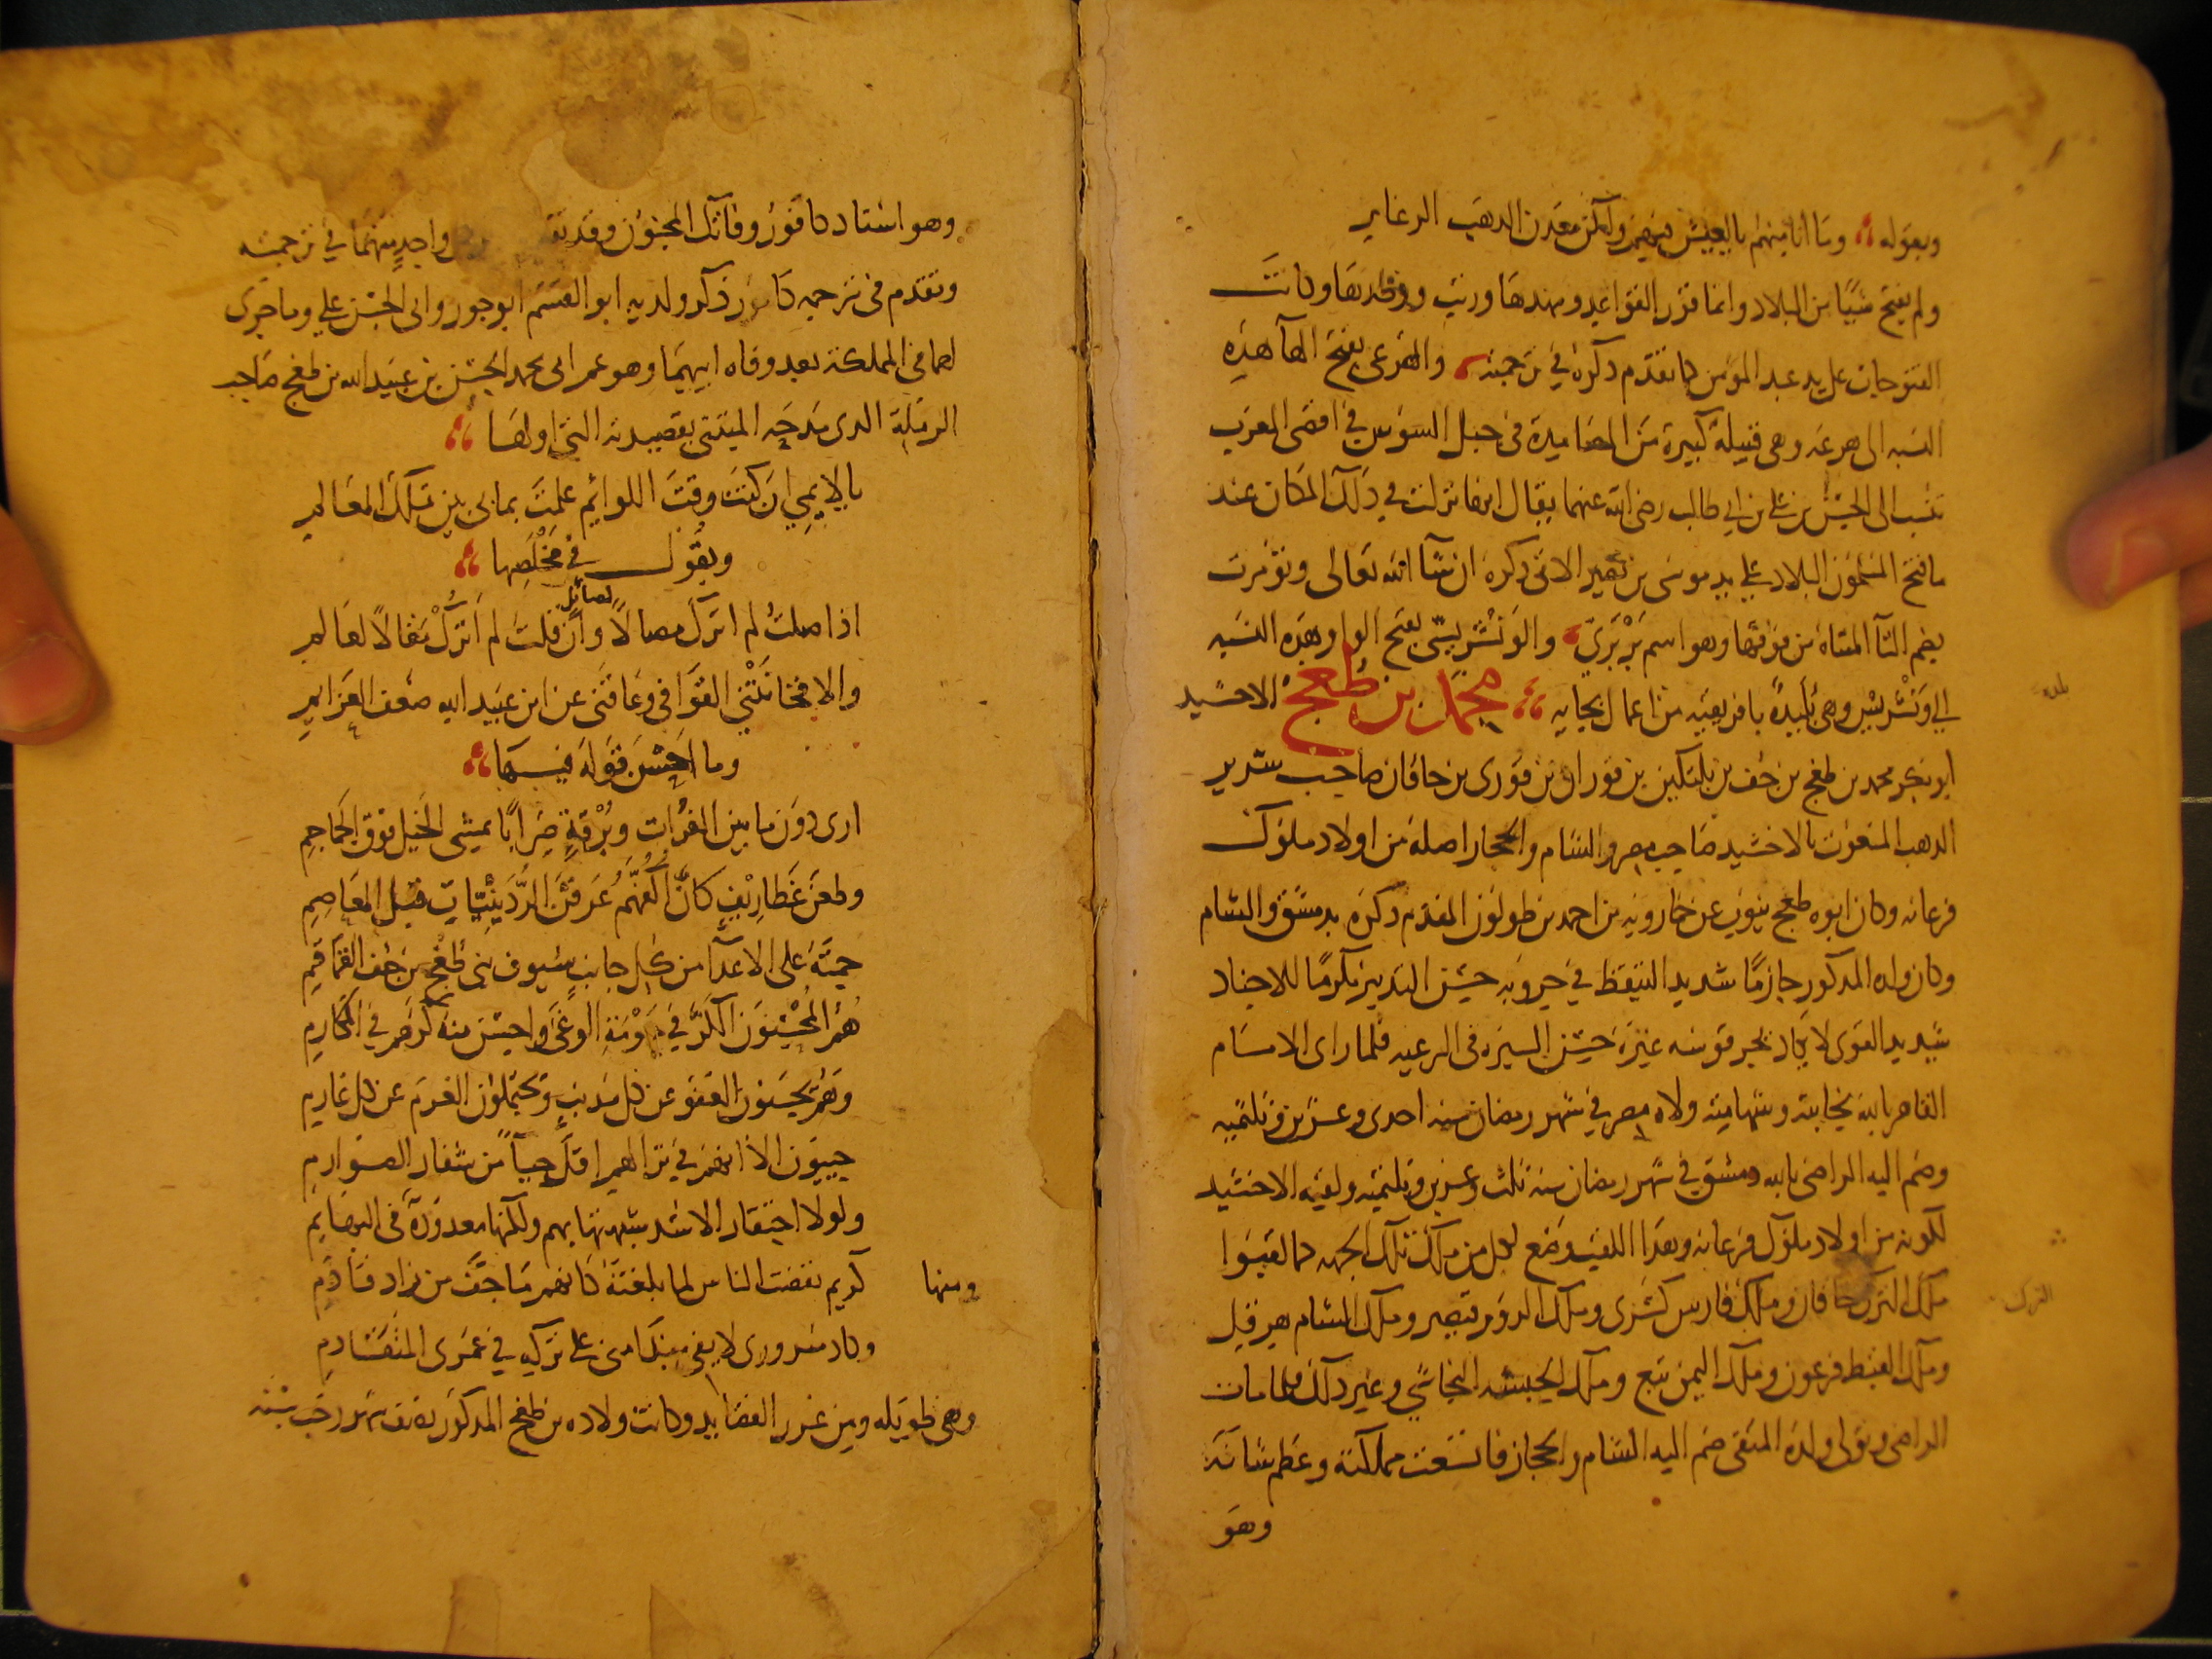 وبقوله وما انا منهم بالعيش فيهم ولكن معدن الذهب الرغام
ولم يفتح شيئا من البلاد وانما قرر القواعد ومهدها ورتب ووطدها وكانت
الفتوحات على يد عبد المومن كما تقدم ذكره في ترجمته والهرغي بفتح الهآ هذه
النسبه الى هرغه وهى قبيلة كبيرة من المصامدة فى جبل السوس في اقصى المغرب
تنسب الى الحسن بن علي بن ابي طالب رضى الله عنهما يقال انها نزلت في ذلك المكان عند
ما فتح المسلمون البلاد على يد موسى بن نصير الاتى ذكره ان شآ الله تعالى وتومرت
بضم التآ المثناه من فوقها وهو اسم بربري والونشريسي بفتح الواو وهذه النسبه
الي ونشريس وهى بليدة بافريقيه من اعمال بجايه محمد بن طغج الاخشيد
ابو بكر محمد بن طغج بن جف بن يلتكين بن فوران بن فورى بن خاقان صاحب سرير
الذهب المنعوت بالاخشيد صاحب مصر والشام والحجاز اصله من اولاد ملوك
فرغانه وكان ابوه طغج ينوب عن خمارويه بن احمد بن طولون المقدم ذكره بدمشق والشام
وكان ولده المذكور حازما شديد التيقظ في حروبه حسن التدبير مكرما للاجناد
شديد القوى لا يكاد يجر قوسه غيره حسن السيره فى الرعيه فلما راى الامام
القاهر بالله نجابته وشهامته ولاه مصر في شهر رمضان سنه احدى وعشرين وثلثميه
وضم اليه الراضى بالله دمشق في شهر رمضان سنه ثلث وعشرين وثلثميه ولقبه الاخشيد
لكونه من اولاد ملوك فرغانه وهذا اللقب وضع لكل من ملك تلك الجهه كما لقبوا
ملك الترك خاقان وملك فارس كسرى وملك الروم قيصر وملك الشام هرقل
وملك القبط فرعون وملك اليمن تبع وملك الحبشه النجاشي وغير ذلك فلما مات
الراضى وتولى ولده المتقى ضم اليه الشام والحجاز فاتسعت مملكته وعظم شانه
وهو
بلده
الترك
وهو استاد كافور وفاتك المجنون وقد واحد منهما في ترجمته
وتقدم فى ترجمه كافور ذكر ولديه ابو القسم ابو جور وابى الحسن علي وما جرى
لهما فى المملكة بعد وفاه ابيهما وهو عم ابى محمد الحسن بن عبيد الله بن طغج صاحب
الرملة الذى مدحه المتنبى بقصيدته التي اولها
يا لايمي ان كنت وقت اللوائم علمت بما بى بين تلك المعالم
ويقول في مخلصها
اذا صلت لم اترك مصالا لصائل وان قلت لم اترك مقالا لعالم
والا فخانتني القوافى وعاقنى عن ابن عبيد الله ضعف العزايم
وما احسن قوله فيها
ارى دون ما بين الفرات وبرقة ضرابا يمشى الخيل فوق الجماجم
وطعن غطاريف كان اكفهم عرفن الردينيات قبل المعاصم
حمته على الاعدآ من كل جانب سيوف بنى طغج بن جف القماقم
هم المحسنون الكر في حومة الوغى واحسن منه كرهم في المكارم
وهم يحسنون العفو عن كل مذنب ويحتملون الغرم عن كل غارم
حييون الا انهم في نزالهم اقل حيآ من شفار الصوارم
ولولا احتقار الاسد شبهتها بهم ولكنها معدودة فى البهايم
ومنها كريم نفضت الناس لما بلغته كانهم ما جف من زاد قادم
وكاد سرورى لا يفى بندامتى على تركه في عمرى المتقادم
وهى طويله ومن غرر القصايد وكانت ولاده بن طغج المذكور نصف شهر رجب سنه